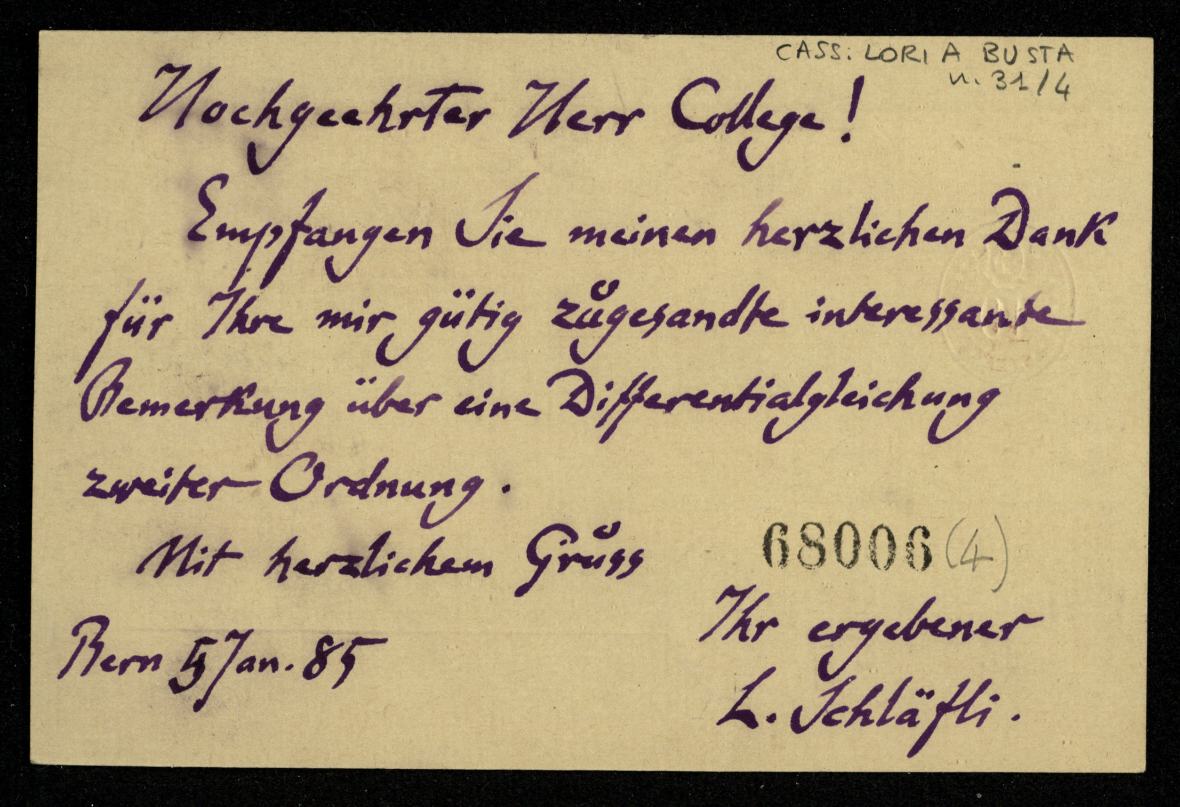 CASS: LORIA BUSTA
n. 31/4
Hochgeehrter Herr College!
Empfangen Sie meinen herzlichen Dank
für Ihre mir gütig zugesandte interessante
Bemerkung über eine Differentialgleichung
zweiter Ordnung.
Mit herzlichem Gruss
68006 (4)
Ihr ergebener
Bern 5 Jan. 85
L. Schläfli.